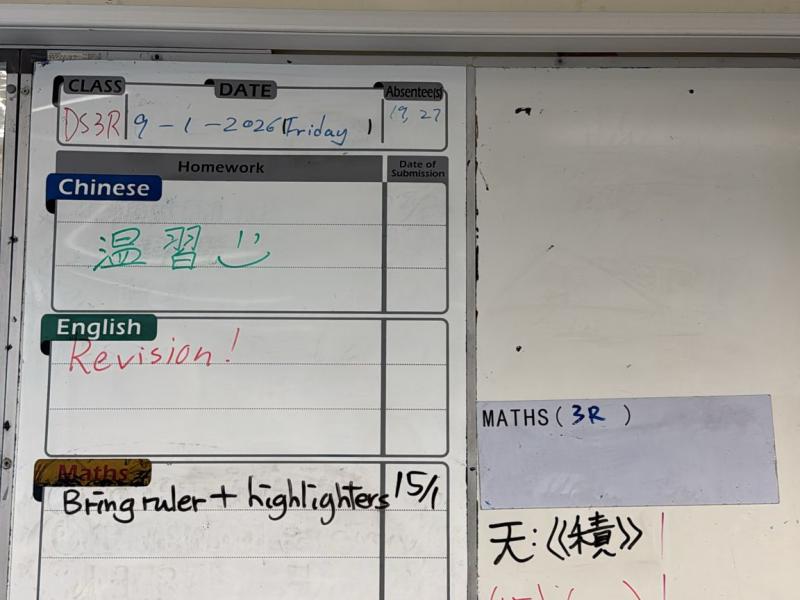 CLASS DATE Absentee(s)
DS3R 9-1-2026 (Friday) 19, 27
Homework Date of Submission
Chinese
温習
English
Revision!
Maths
Bring ruler + highlighters 15/1
MATHS( 3R )
天:《積》